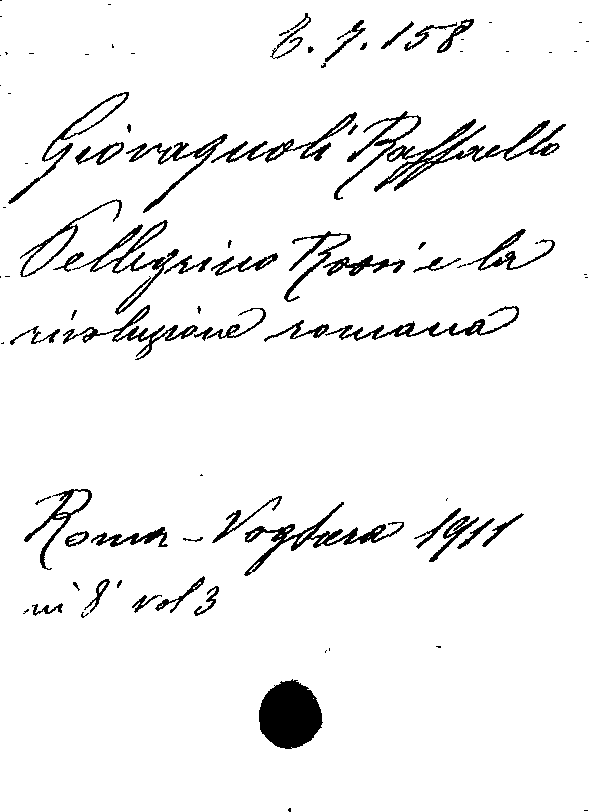 6.7.158
Giovagnoli Raffaello
Pellegrino Rossi e la
rivoluzione romana
Roma - Voghera 1911
in 8° vol 3